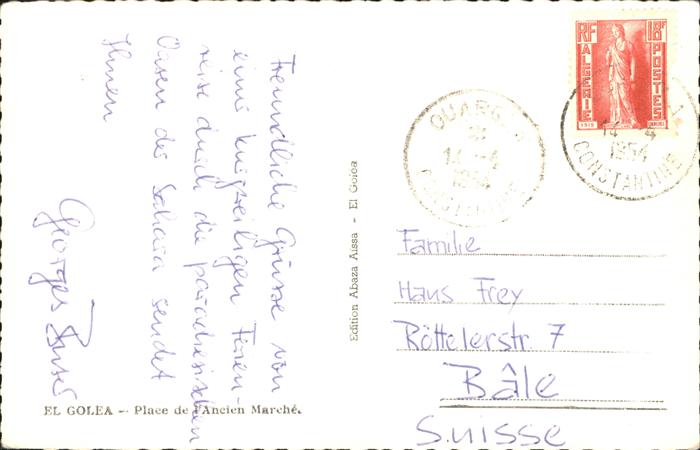 Freundliche Grüsse von
einer kurzweiligen Ferien-
reise durch die paradiesischen
Oasen der Sahara sendet
Ihnen
Georges
EL GOLEA -- Place de l'Ancien Marché.
Edition Abaza Aissa - El Goléa
RF 18F
ALGERIE POSTES
OUARGLA
14 -4
1954
CONSTANTINE
14 -4
1954
CONSTANTINE
Familie
Hans Frey
Röttelerstr. 7
Bâle
Suisse